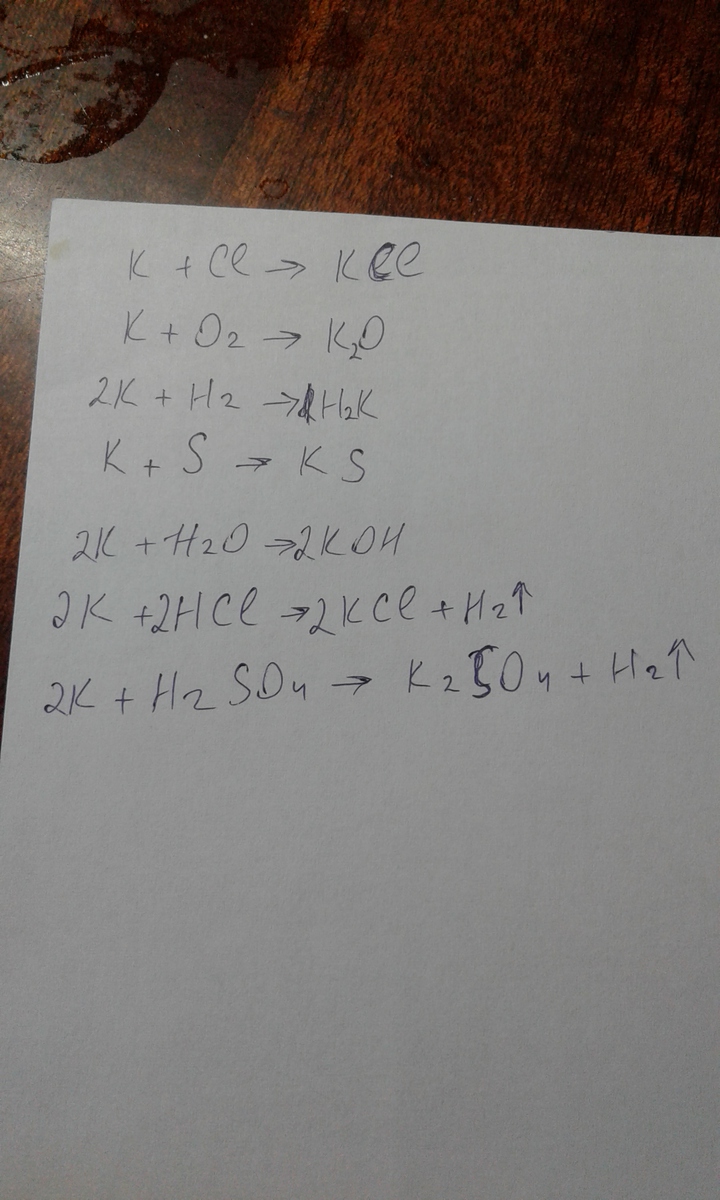 K + Cl → KCl
K + O2 → K2O
2K + H2 → H2K
K + S → K S
2K + H2O → 2KOH
2K + 2HCl → 2KCl + H2↑
2K + H2SO4 → K2SO4 + H2↑